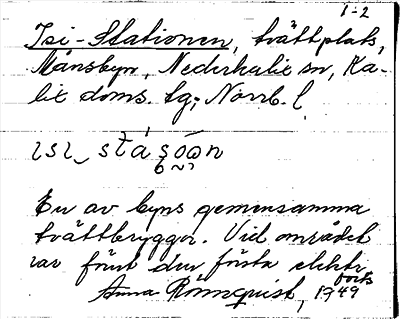 1-2
Isi-Stationen, tvättplats,
Månsbyn, Nederkalix sn, Ka-
lix doms. tg; Norrb. l.
En av byns gemensamma
tvättbryggor. Vid området
var först den första elektr
forts
Anna Rönnquist, 1949